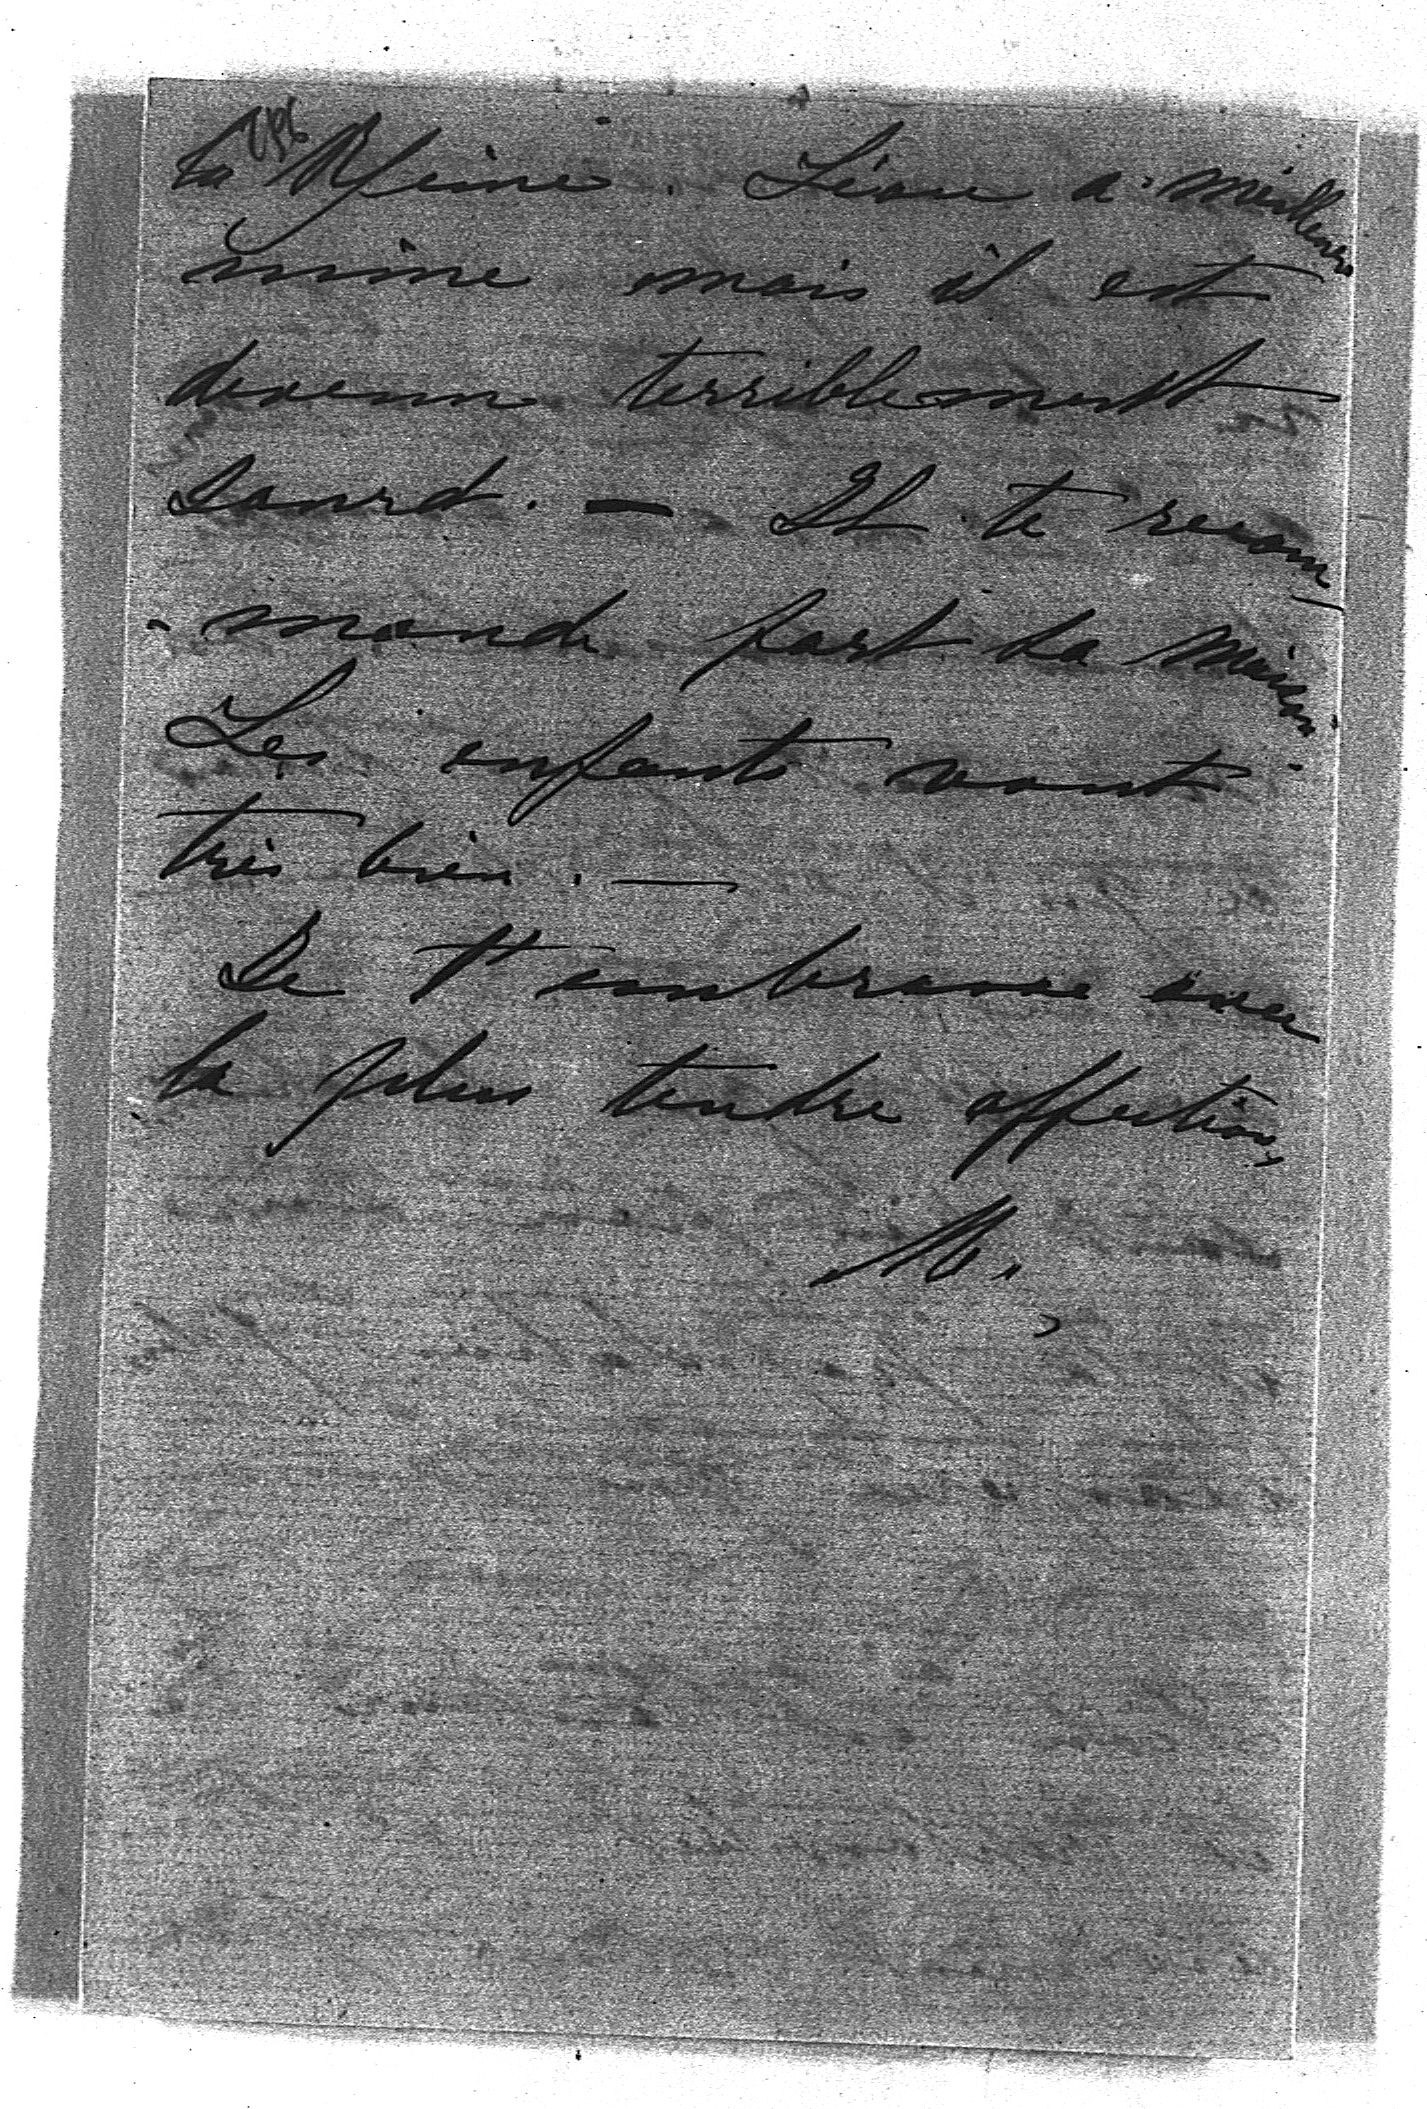 la Reine. Léon a meilleure
mine mais il est
devenu terriblement
sourd. — Il te recom
- mande fort sa
Les enfants vont
très bien. —
Je t'embrasse avec
la plus tendre affection,
M.